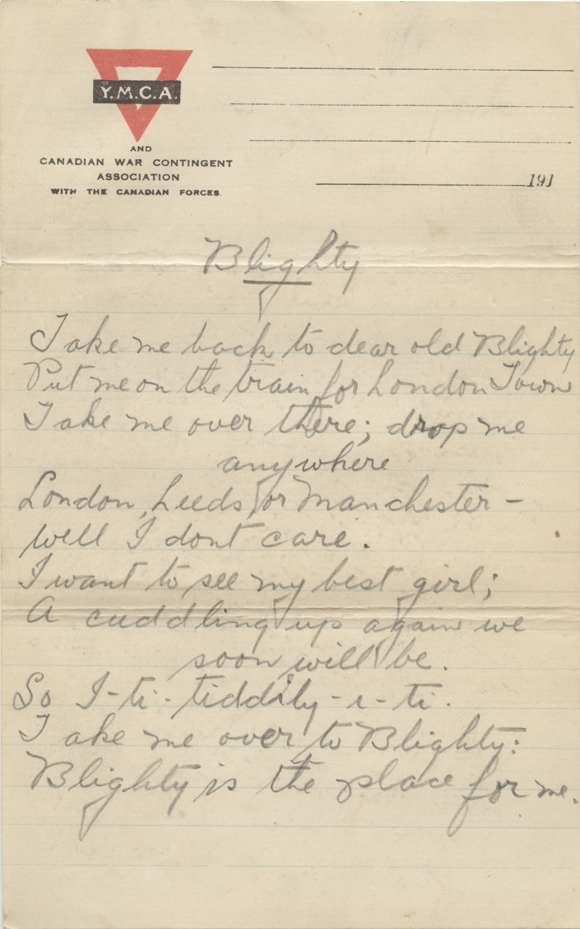 Y.M.C.A.
AND
CANADIAN WAR CONTINGENT
ASSOCIATION
WITH THE CANADIAN FORCES.
191
Blighty
Take me back to dear old Blighty
Put me on the train for London Town
Take me over there; drop me
anywhere
London, Leeds or Manchester -
well I dont care.
I want to see my best girl;
A cuddling up again we
soon will be.
So I-ti-tiddily-i-ti.
Take me over to Blighty:
Blighty is the place for me.